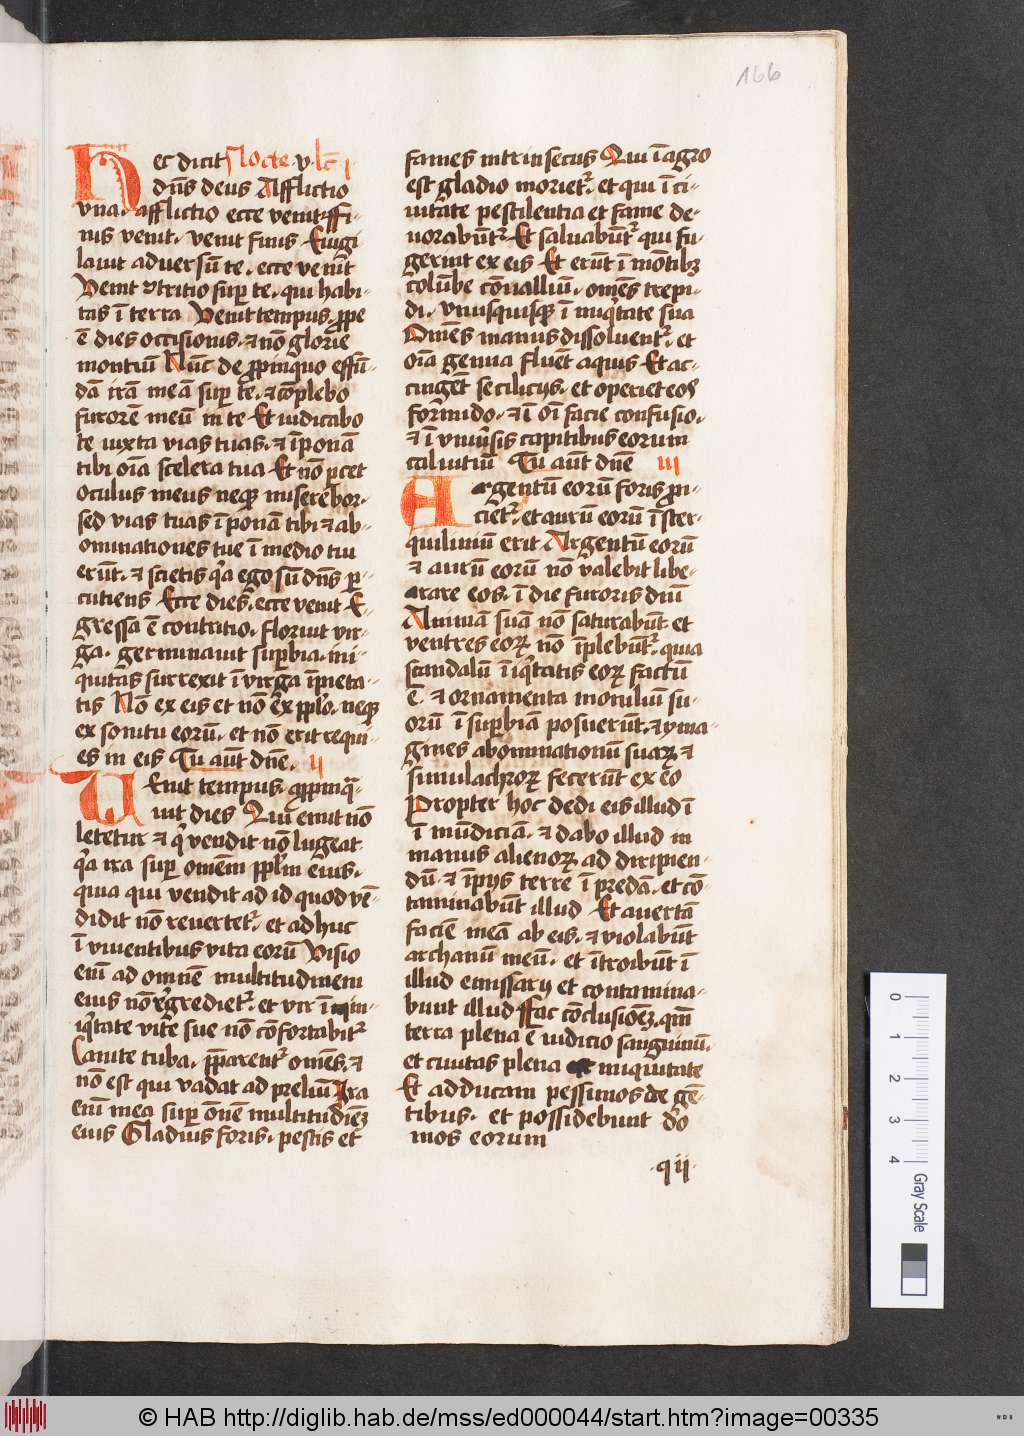 166
Hec dicit Nocte v. lc̄ i
dn̄s deus Afflictio
vna. afflictio ecce venit. ffi-
nis venit. venit finis Euigi
lauit aduersū te. ecce venit
Venit ꝯtritio suꝑ te. qui habi-
tas ī terra Venit tempus. ꝓpe
ē dies occisionis. ⁊ nō glorie
montiū Nūc de ꝓpinquo effū-
dā irā meā suꝑ te. ⁊ cōplebo
furorē meū in te Et iudicabo
te iuxta vias tuas. ⁊ īponā
tibi oīa scelera tua Et nō ꝑcet
oculus meus neqꝫ miserebor.
sed vias tuas īponā tibi ⁊ ab-
ominationes tue ī medio tui
erūt. ⁊ scietis qͣa ego sū dn̄s ꝑ-
cutiens Ecce dies. ecce venit E-
gressa ē contritio. floruit vir-
ga. germinauit suꝑbia. ini-
quitās surrexit ī virga īpieta-
tis Nō ex eis et nō ex ppl̄o. neqꝫ
ex sonitu eorū. et nō erit requi-
es in eis Tu aūt dn̄e. ii
Venit tempus. aꝓpinqͣ-
uit dies Qui emit nō
letetur ⁊ qͥ vendit nō lugeat
qͣa ira suꝑ omēm ppl̄m eius.
quia qui vendit ad id quod vē-
didit nō reuertetͬ. et adhuc
ī viuentibus vita eorū Visio
eīm ad omnē multitudinem
eius nō egredietͬ. et vir ī in-
iqͥtate vite sue nō cōfortabitͬ
Canite tuba. p̄parentͬ omēs. ⁊
nō est qui vadat ad preliū Ira
eīm mea suꝑ oēm multitudiēꝫ
eius Gladius foris. pestis et
fames intrinsecus Qui ī agro
est gladio morietͬ. et qui ī ci-
uitate pestilentia et fame de-
uorabūtͬ Et saluabūtͬ qui fu-
gerint ex eis Et erūt ī mōtibꝫ
colūbe cōualliū. omēs trepi-
di. vnusquisqꝫ ī iniqͥtate sua
Omēs manus dissoluentͬ. et
oīa genua fluēt aquis Et ac-
cingēt se cilicijs. et operiet eos
formido. ⁊ ī oī facie confusio.
⁊ ī vniuͥsis capitibus eorum
caluitiū Tu aūt dn̄e iii
Argentū eorū foris ꝓi-
cietͬ. et aurū eorū ī ster-
quiliniū erit Argentū eorū
⁊ aurū eorū nō valebit libe-
rare eos. ī die furoris dn̄i
Animā suā nō saturabūt. et
ventres eoꝝ nō īplebūtͬ. quia
scandalū īiqͥtatis eoꝝ factū
ē. ⁊ ornamenta moniliū su-
orū ī suꝑbiā posuerūt. ⁊ yma-
gines abominationū suaꝝ ⁊
simulachroꝝ fecerūt ex eo
Propter hoc dedi eis illud ī
ī mūdiciā. ⁊ dabo illud in
manus alienoꝝ ad diripien-
dū. ⁊ īpijs terre ī predā. et cō-
taminabūt illud Et auertā
faciē meā ab eis. ⁊ violabūt
archanū meū. et ītroibūt ī
illud emissarij et contamina-
bunt illud ffac cōclusionēꝫ. qm̄
terra plena ē iudicio sanguinū.
et ciuitas plena iniquitate
Et adducam pessimos de gē-
tibus. et possidebunt do
mos eorum
.qii.
0 1 2 3 4 Gray Scale
© HAB http://diglib.hab.de/mss/ed000044/start.htm?image=00335